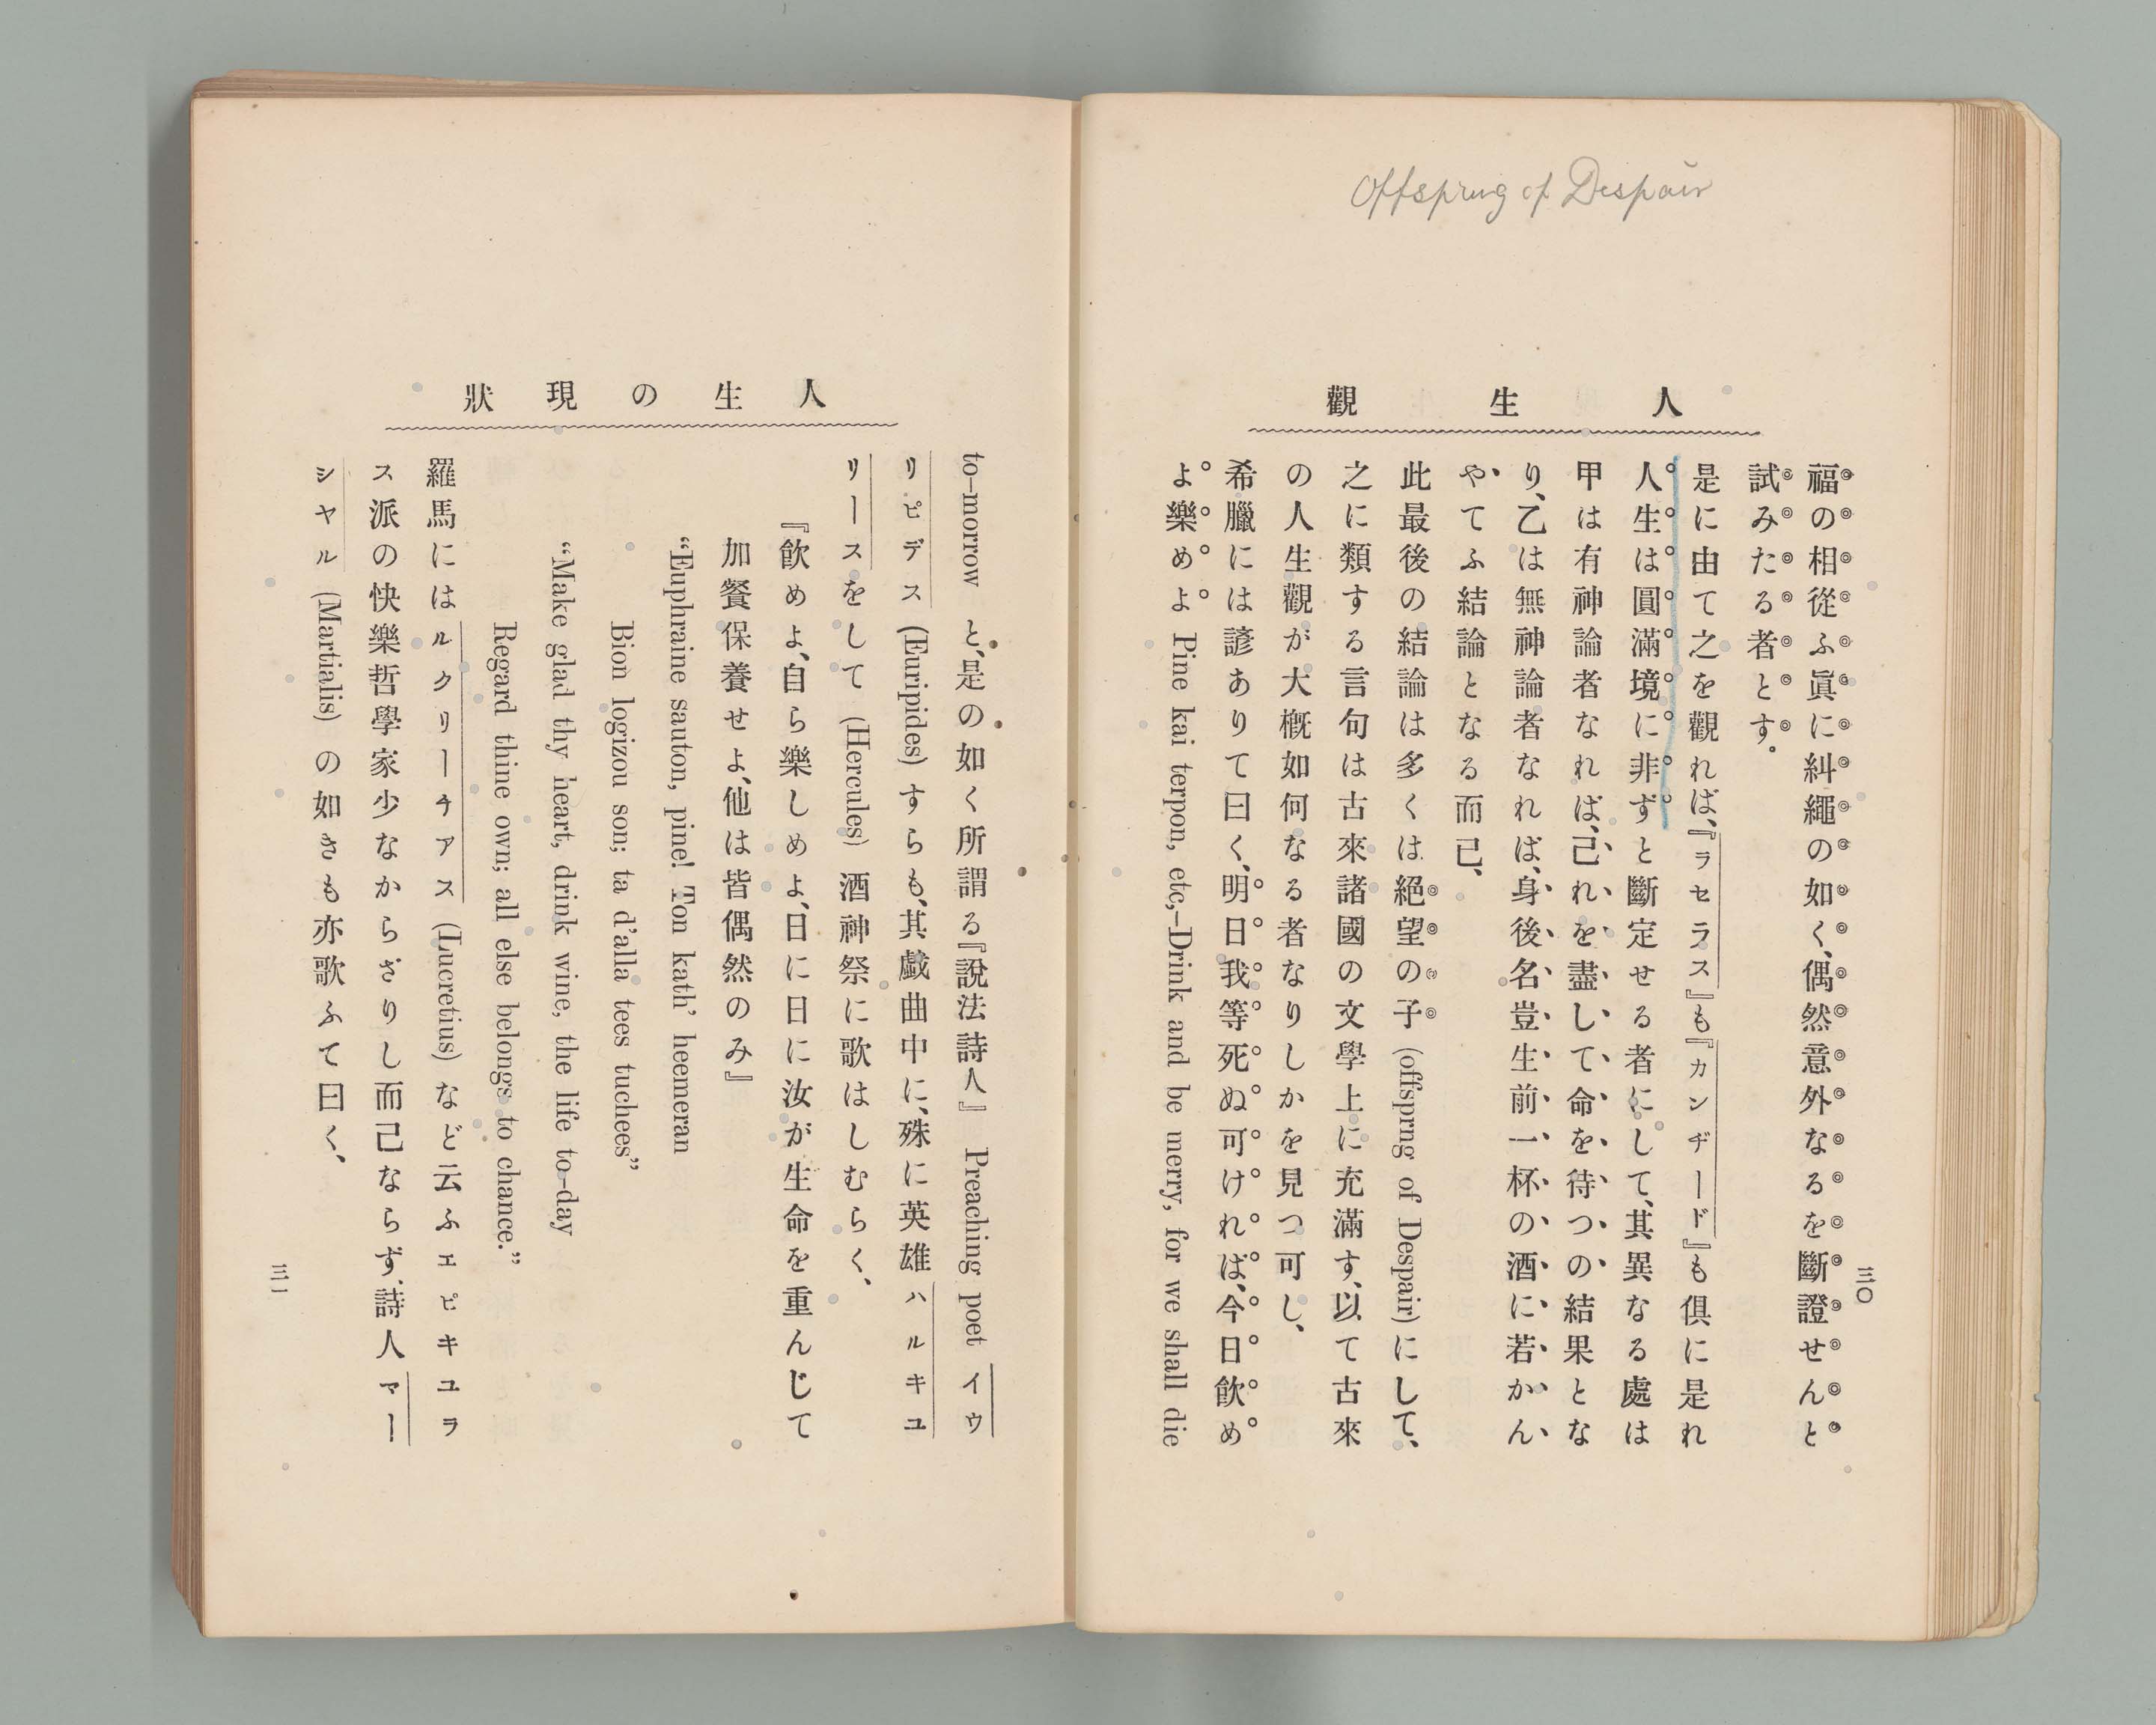 Offspring of Despair
人生觀
三〇
福の相從ふ眞に糾繩の如く、偶然意外なるを斷證せんと
試みたる者とす。
是に由て之を觀れば、『ラセラス』も『カンヂード』も俱に是れ
人生は圓滿境に非ずと斷定せる者にして、其異なる處は
甲は有神論者なれば、己れを盡して命を待つの結果とな
り、乙は無神論者なれば、身後名豈生前一杯の酒に若かん
やてふ結論となる而已、
此最後の結論は多くは絕望の子 (offsprng of Despair) にして、
之に類する言句は古來諸國の文學上に充滿す、以て古來
の人生觀が大槪如何なる者なりしかを見つ可し、
希臘には諺ありて曰く、明日我等死ぬ可ければ、今日飮め
よ樂めよ Pine kai terpon, etc,—Drink and be merry, for we shall die
人生の現狀
to-morrow と、是の如く所謂る『說法詩人』 Preaching poet イウ
リピデス (Euripides) すらも、其戯曲中に、殊に英雄ハルキユ
リースをして (Hercules) 酒神祭に歌はしむらく、
『飮めよ、自ら樂しめよ、日に日に汝が生命を重んじて
加餐保養せよ、他は皆偶然のみ』
“Euphraine sauton, pine! Ton kath’ heemeran
Bion logizou son; ta d’alla tees tuchees”
“Make glad thy heart, drink wine, the life to-day
Regard thine own; all else belongs to chance.”
羅馬にはルクリーチアス (Lucretius) など云ふエピキユラ
ス派の快樂哲學家少なからざりし而己ならず、詩人マー
シヤル (Martialis) の如きも亦歌ふて曰く、
三一